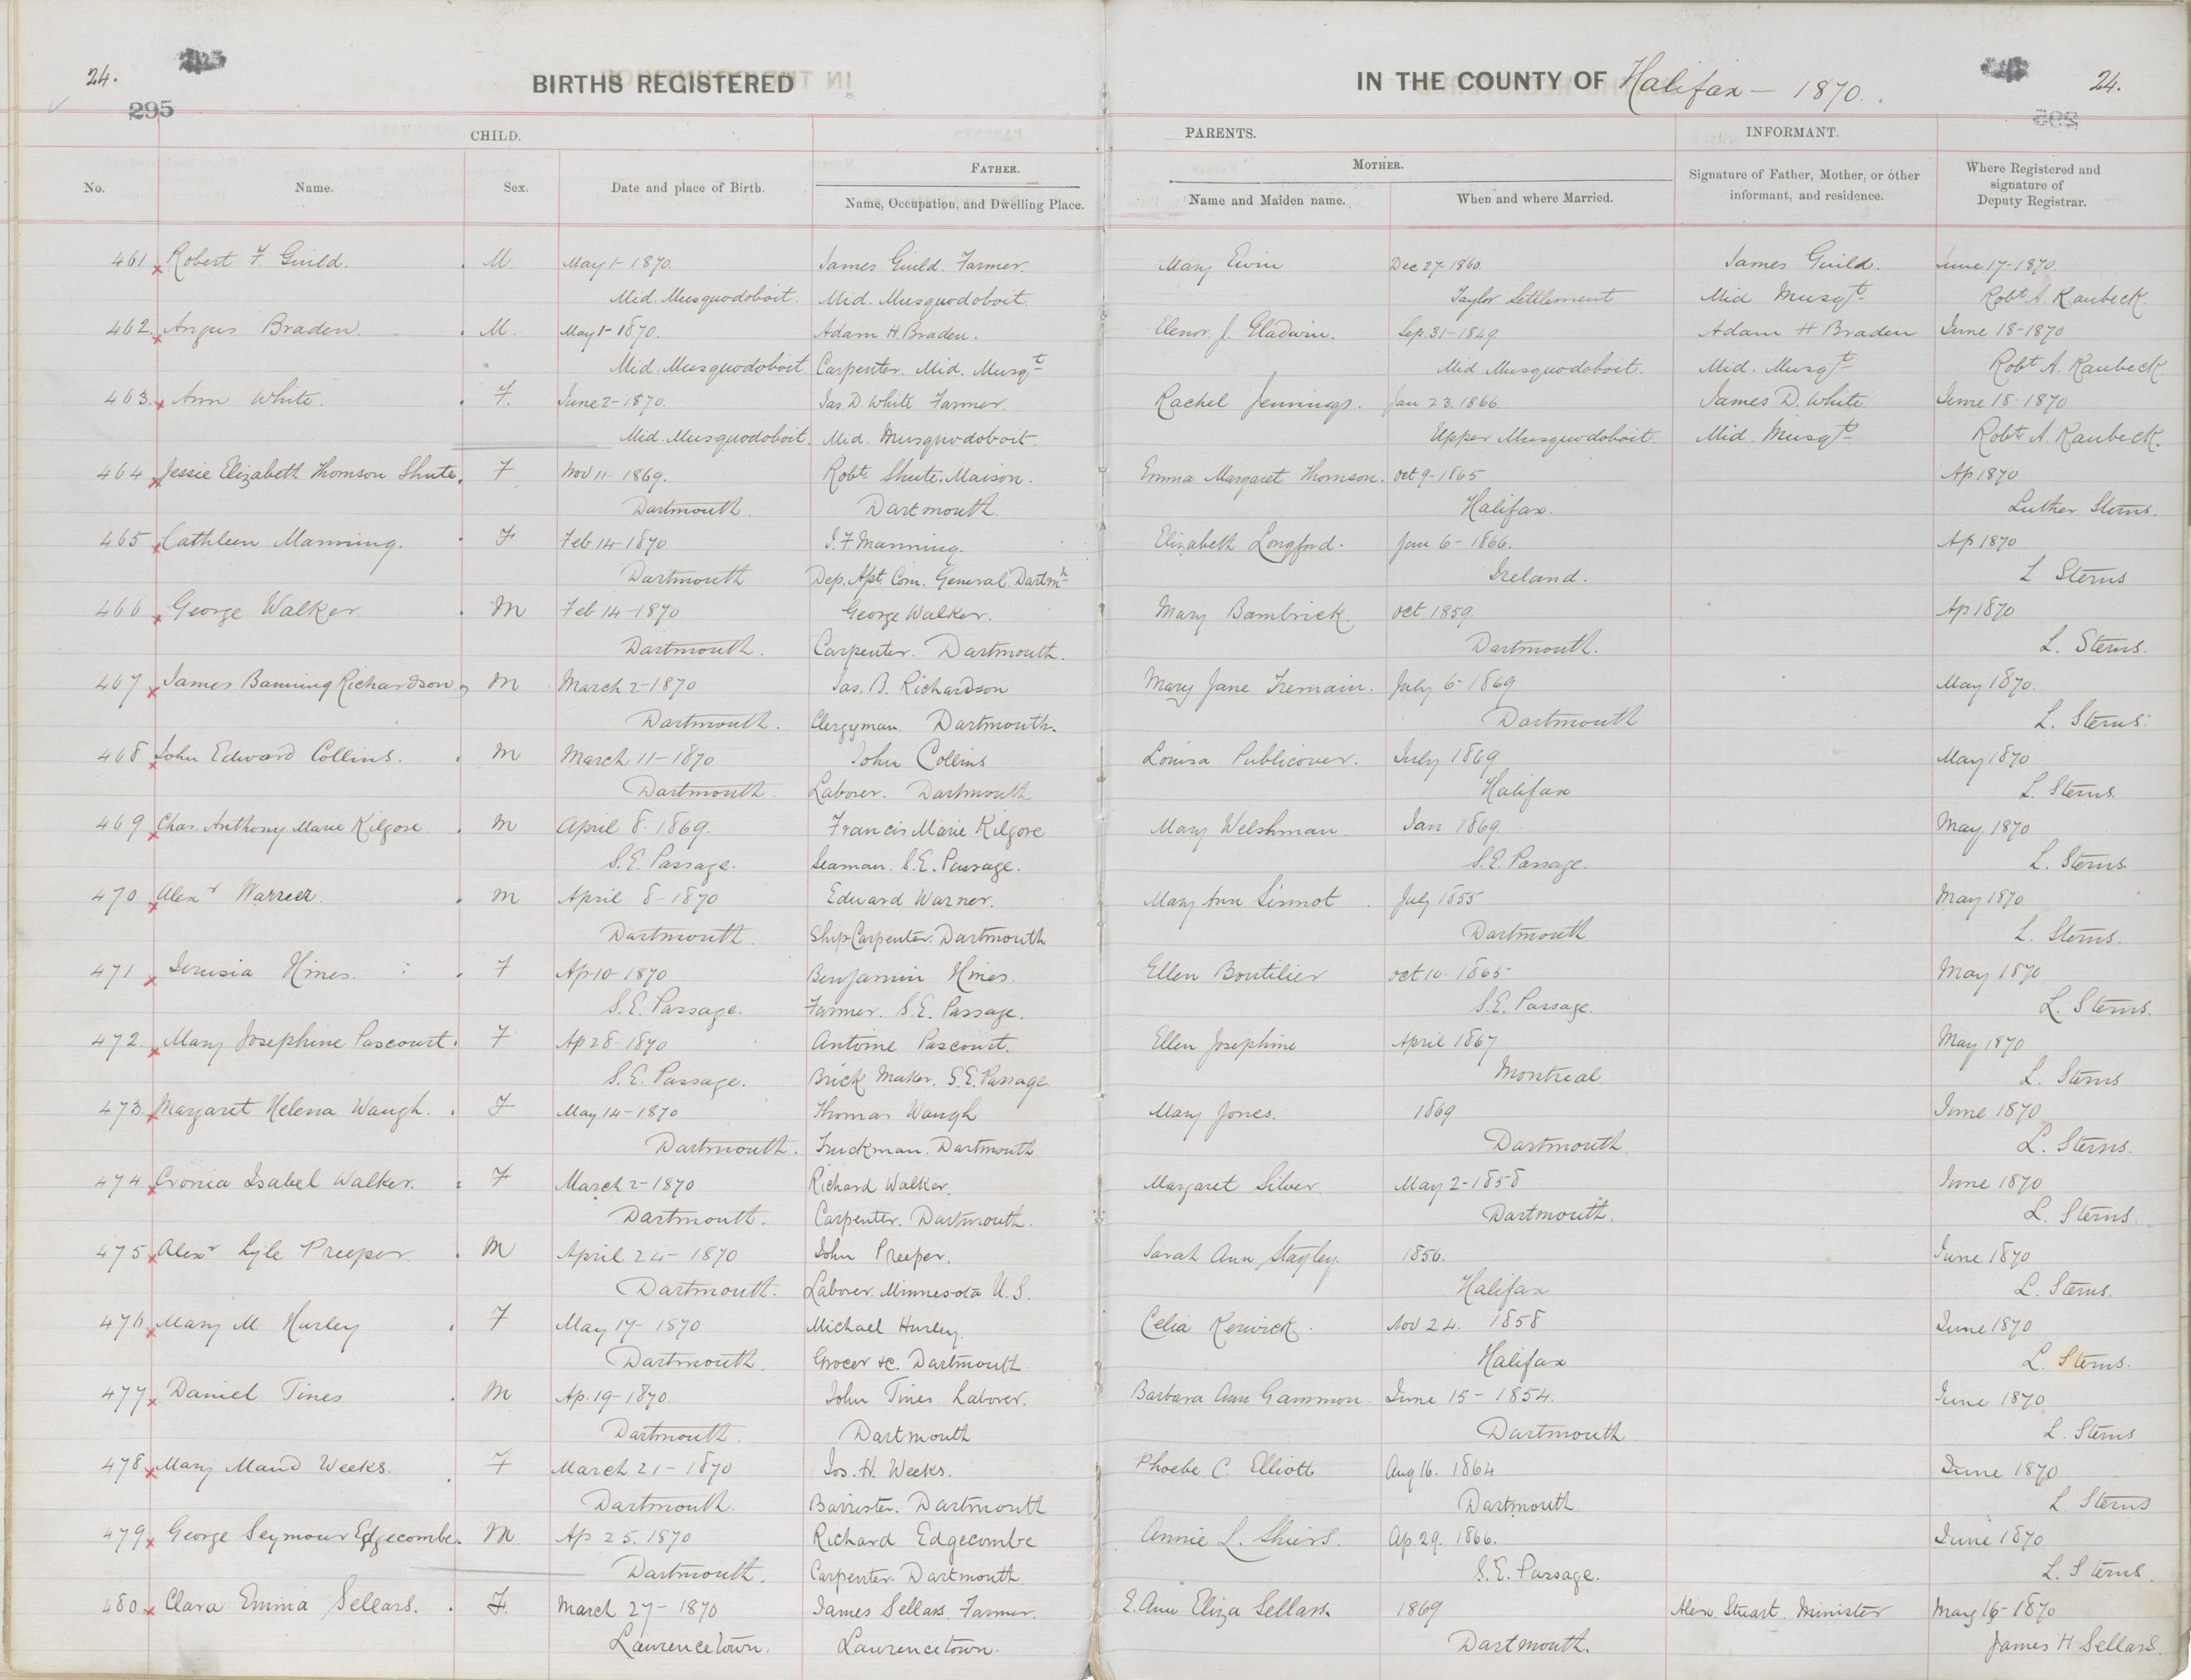 24.
295
BIRTHS REGISTERED
IN THE COUNTY OF Halifax — 1870.
24.
CHILD.
PARENTS.
INFORMANT.
No.
Name.
Sex.
Date and place of Birth.
FATHER.
Name, Occupation, and Dwelling Place.
MOTHER.
Name and Maiden name.
When and where Married.
Signature of Father, Mother, or other informant, and residence.
Where Registered and signature of Deputy Registrar.
461 Robert F. Guild. M. May 1- 1870. James Guild. Farmer. Mary Ewin Dec 27-1860. James Guild. June 17-1870
Mid. Musquodoboit. Mid. Musquodoboit. Taylor Settlement Mid Musqt Robt A. Kaubeck.
462 Angus Braden. M. May 1-1870. Adam H. Braden. Elenor J. Gladwin. Sep. 31-1849. Adam H Braden June 18-1870
Mid. Musquodoboit Carpenter. Mid. Musqt Mid Musquodoboit. Mid. Musqt Robt A. Kaubeck
463. Ann White. F. June 2-1870. Jas. D. White Farmer. Rachel Jennings. Jan 23. 1866 James D. White. June 18-1870
Mid. Musquodoboit. Mid. Musquodoboit. Upper Musquodoboit Mid. Musqt Robt A. Kaubeck.
464 Jessie Elizabeth Thomson Shute. F Nov 11-1869. Robt Shute. Maison. Emma Margaret Thomson. Oct 9-1865 Ap 1870
Dartmouth. Dartmouth. Halifax. Luther Sterns.
465 Cathleen Manning. F Feb 14-1870 J. F. Manning. Elizabeth Longford. Jan 6-1866. Ap 1870
Dartmouth Dep. Apt. Com. General. Dartmh Ireland. L Sterns
466 George Walker. M Feb 14-1870 George Walker. Mary Bambrick. Oct 1859. Ap 1870
Dartmouth. Carpenter. Dartmouth. Dartmouth. L. Sterns.
467 James Banning Richardson M March 2-1870 Jas. B. Richardson Mary Jane Tremain. July 6-1869 May 1870.
Dartmouth. Clergyman. Dartmouth. Dartmouth L. Sterns.
468 John Edward Collins. M March 11-1870 John Collins Louisa Publicover. July 1869 May 1870
Dartmouth Laborer. Dartmouth Halifax L. Sterns.
469 Chas. Anthony Marie Kilgore M April 8. 1869. Francis Marie Kilgore Mary Welshman. Jan 1869 May 1870
S.E. Passage. Seaman. S.E. Passage. S.E. Passage. L. Sterns
470 Alexr M April 8-1870 Edward Warner. Mary Ann Sinnot July 1855 May 1870
Dartmouth. Ship Carpenter. Dartmouth Dartmouth L. Sterns.
471 Hines. F Ap 10-1870 Benjamin Hines. Ellen Boutilier Oct 10. 1865 May 1870
S.E. Passage. Farmer. S.E. Passage. S.E. Passage. L. Sterns.
472. Mary Josephine Pascourt. F Ap 28 1870 Antoine Pascourt. Ellen Josephine April 1867 May 1870
S.E. Passage. Brick Maker. S.E. Passage Montreal L. Sterns
473 Margaret Helena Waugh. F May 14-1870 Thomas Waugh Mary Jones. 1869 June 1870
Dartmouth. Truckman. Dartmouth Dartmouth L. Sterns.
474 Cronia Isabel Walker. F March 2-1870 Richard Walker. Margaret Silver. May 2-1858 June 1870
Dartmouth. Carpenter. Dartmouth. Dartmouth. L. Sterns.
475 Alexr Lyle Preeper. M April 24-1870 John Preeper. Sarah Ann Stayley. 1856. June 1870
Dartmouth. Laborer. Minnesota U.S. Halifax L. Sterns.
476 Mary M Hurley F May 17-1870 Michael Hurley. Celia Kenrick. Nov 24. 1858 June 1870
Dartmouth. Grocer &c. Dartmouth Halifax L. Sterns.
477 Daniel Tines M Ap. 19-1870. John Tines Laborer. Barbara Ann Gammon June 15-1854. June 1870
Dartmouth. Dartmouth Dartmouth L. Sterns
478 Mary Maud Weeks. F March 21-1870 Jos. H. Weeks. Phoebe C. Elliott Aug 16. 1864 June 1870
Dartmouth. Barrister. Dartmouth Dartmouth L Sterns
479 George Seymour Edgecombe. M Ap 25. 1870 Richard Edgecombe Annie L. Shiers. Ap 29. 1866. June 1870
Dartmouth. Carpenter. Dartmouth S.E. Passage. L. Sterns.
480 Clara Emma Sellars. F. March 27-1870 James Sellars. Farmer. E. Ann Eliza Sellars. 1869 Alex Stuart. Minister May 16-1870
Laurencetown. Laurencetown. Dartmouth. James H Sellars